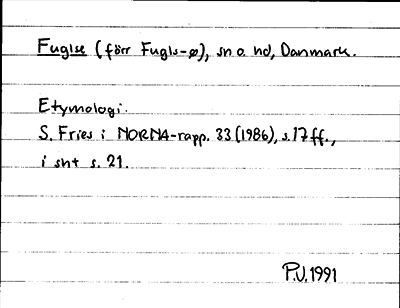 Fuglse (förr Fugls-ø), sn o. hd, Danmark.
Etymologi.
S. Fries i NORNA-rapp. 33 (1986), s. 17 ff.,
i sht s. 21.
P.V. 1991